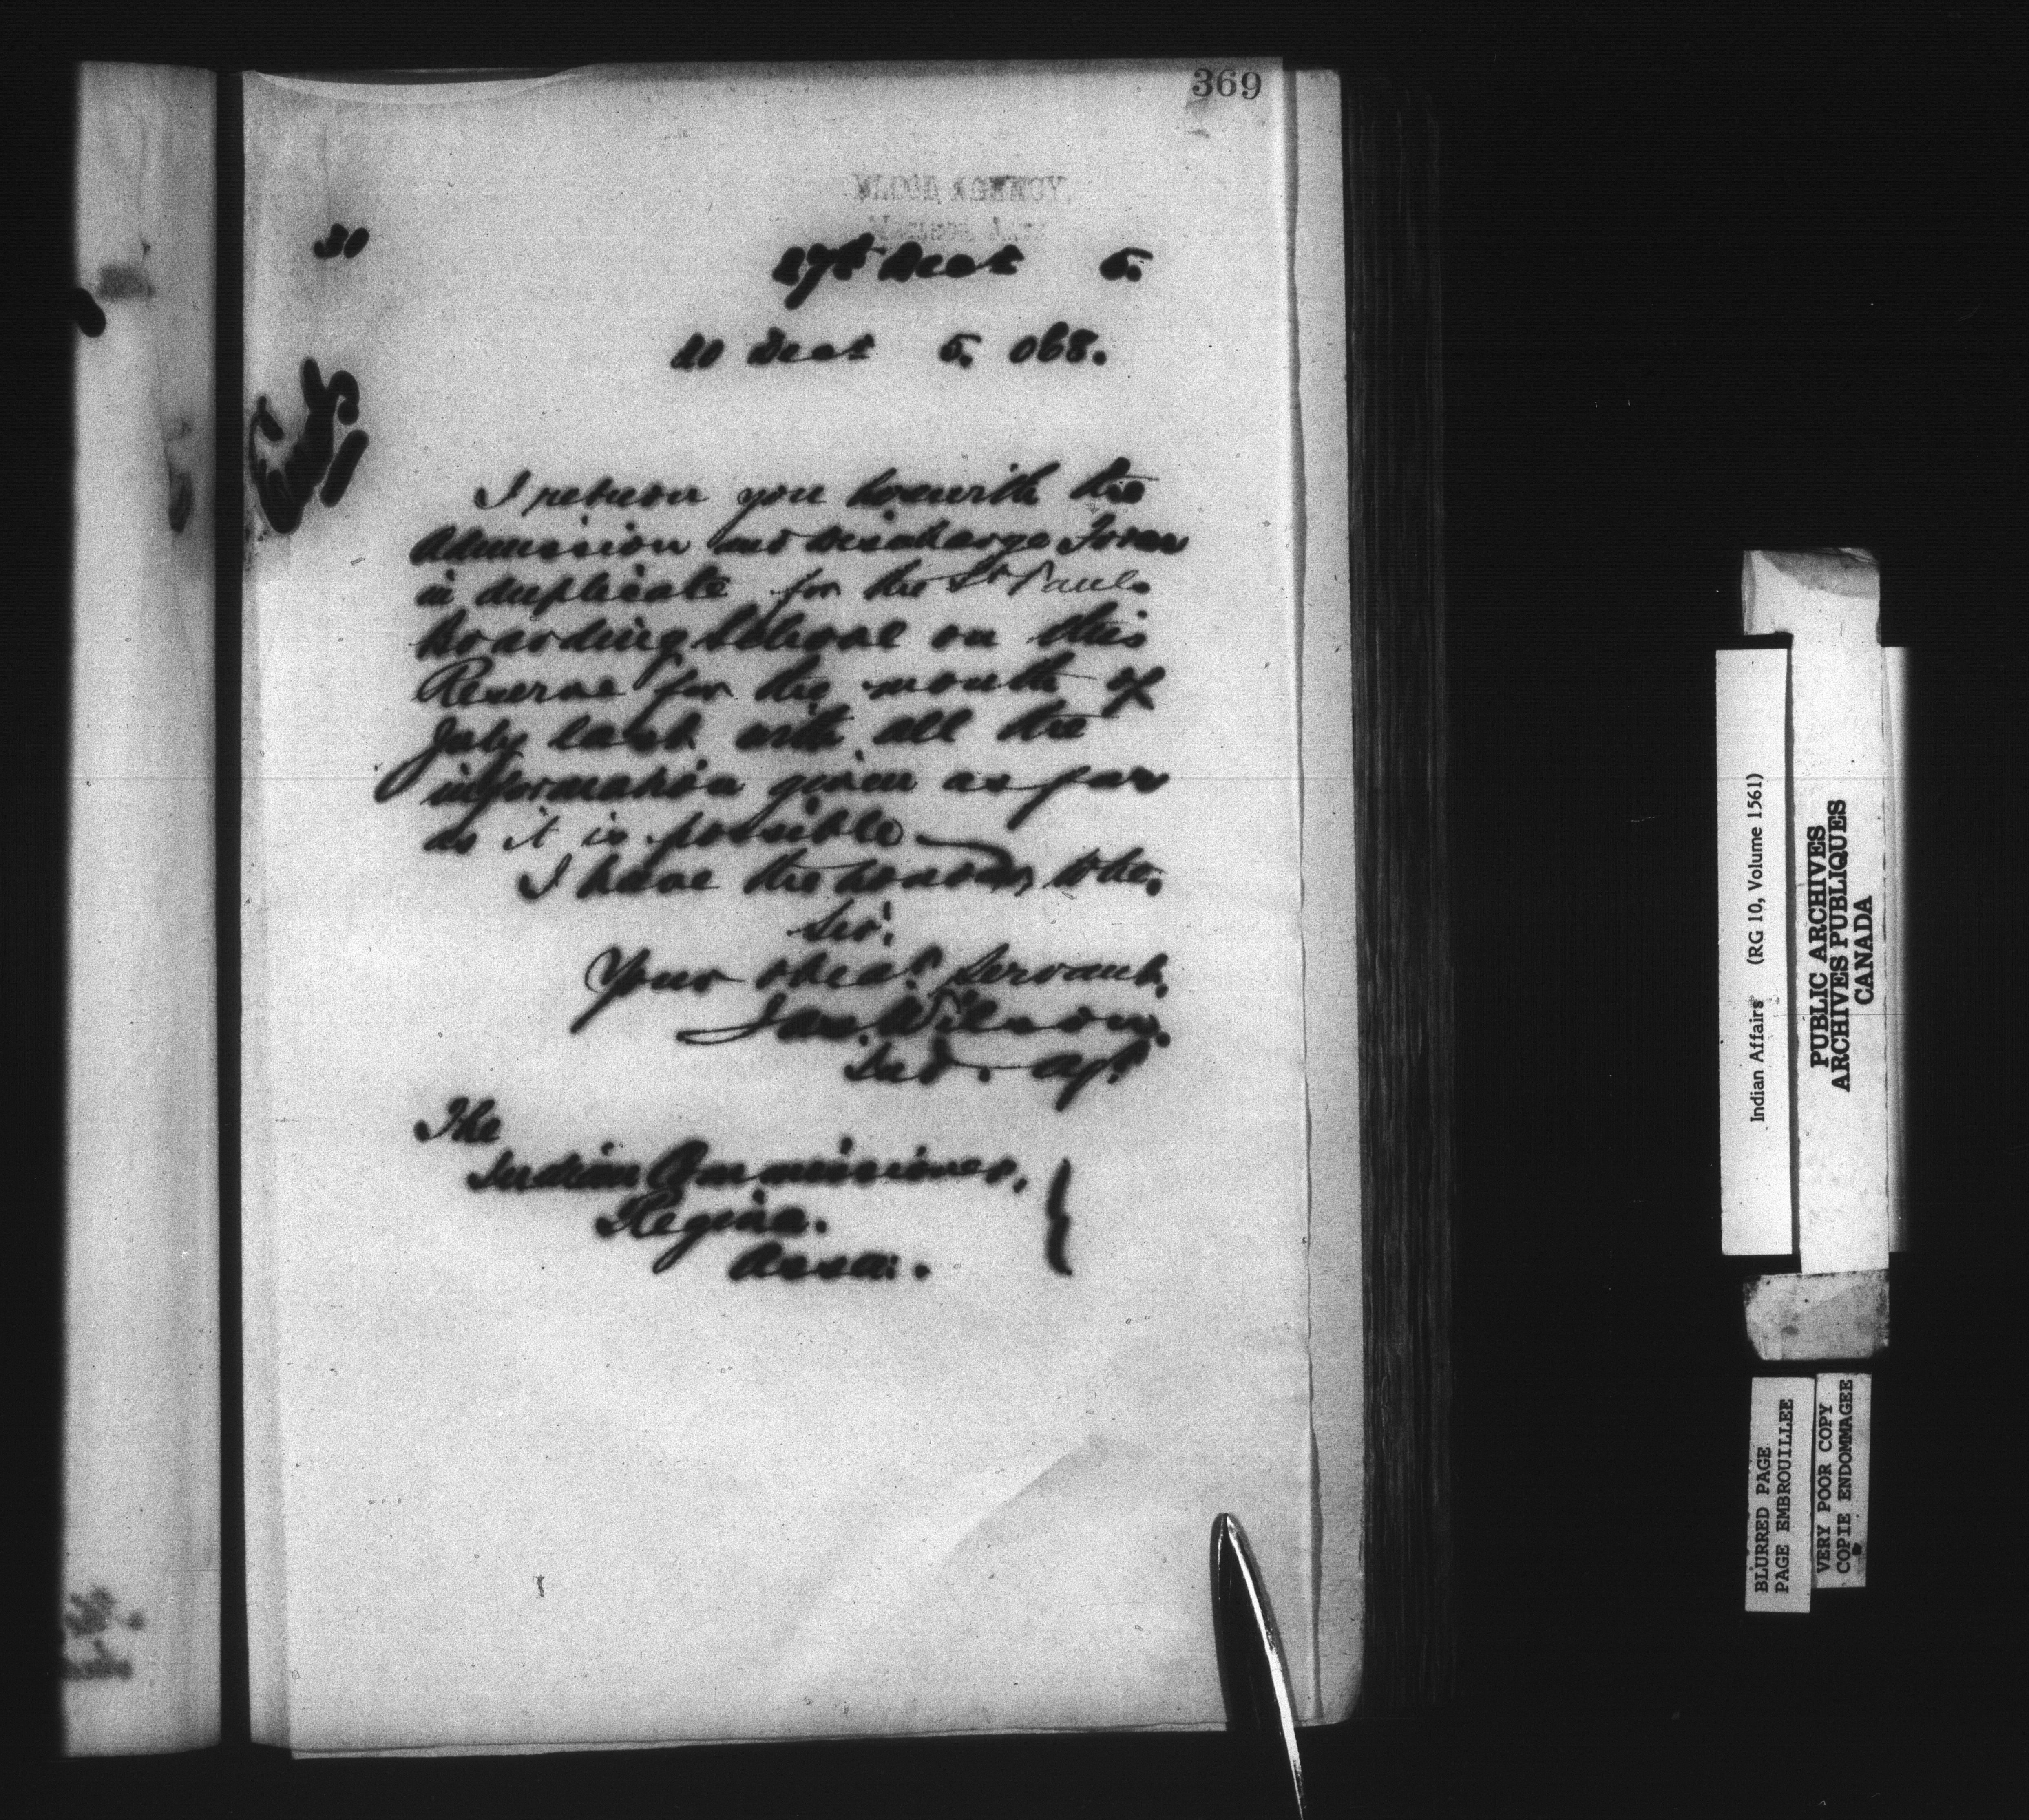 369
BLOOD AGENCY,
30
27th Dect 5.
20 Dect 5. 068.
Encls
I return you herewith the
Admission and Discharge Forms
in duplicate for the St Pauls
Boarding School on this
Reserve for the month of
July last with all the
information given as far
as it is possible
I have the honour to be,
Sir.
Your obedt. Servant.
Jas Wilson.
Ind. Agt
The
Indian Commissioner,
Regina.
Assa: .
Indian Affairs (RG 10, Volume 1561)
PUBLIC ARCHIVES
ARCHIVES PUBLIQUES
CANADA
BLURRED PAGE
PAGE EMBROUILLEE
VERY POOR COPY
COPIE ENDOMMAGEE